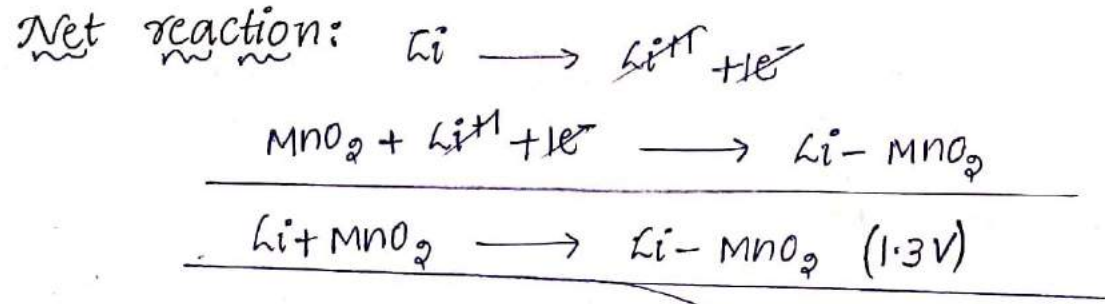 Net reaction: Li ⟶ Li⁺¹ + 1e⁻
MnO₂ + Li⁺¹ + 1e⁻ ⟶ Li - MnO₂
Li + MnO₂ ⟶ Li - MnO₂ (1.3V)